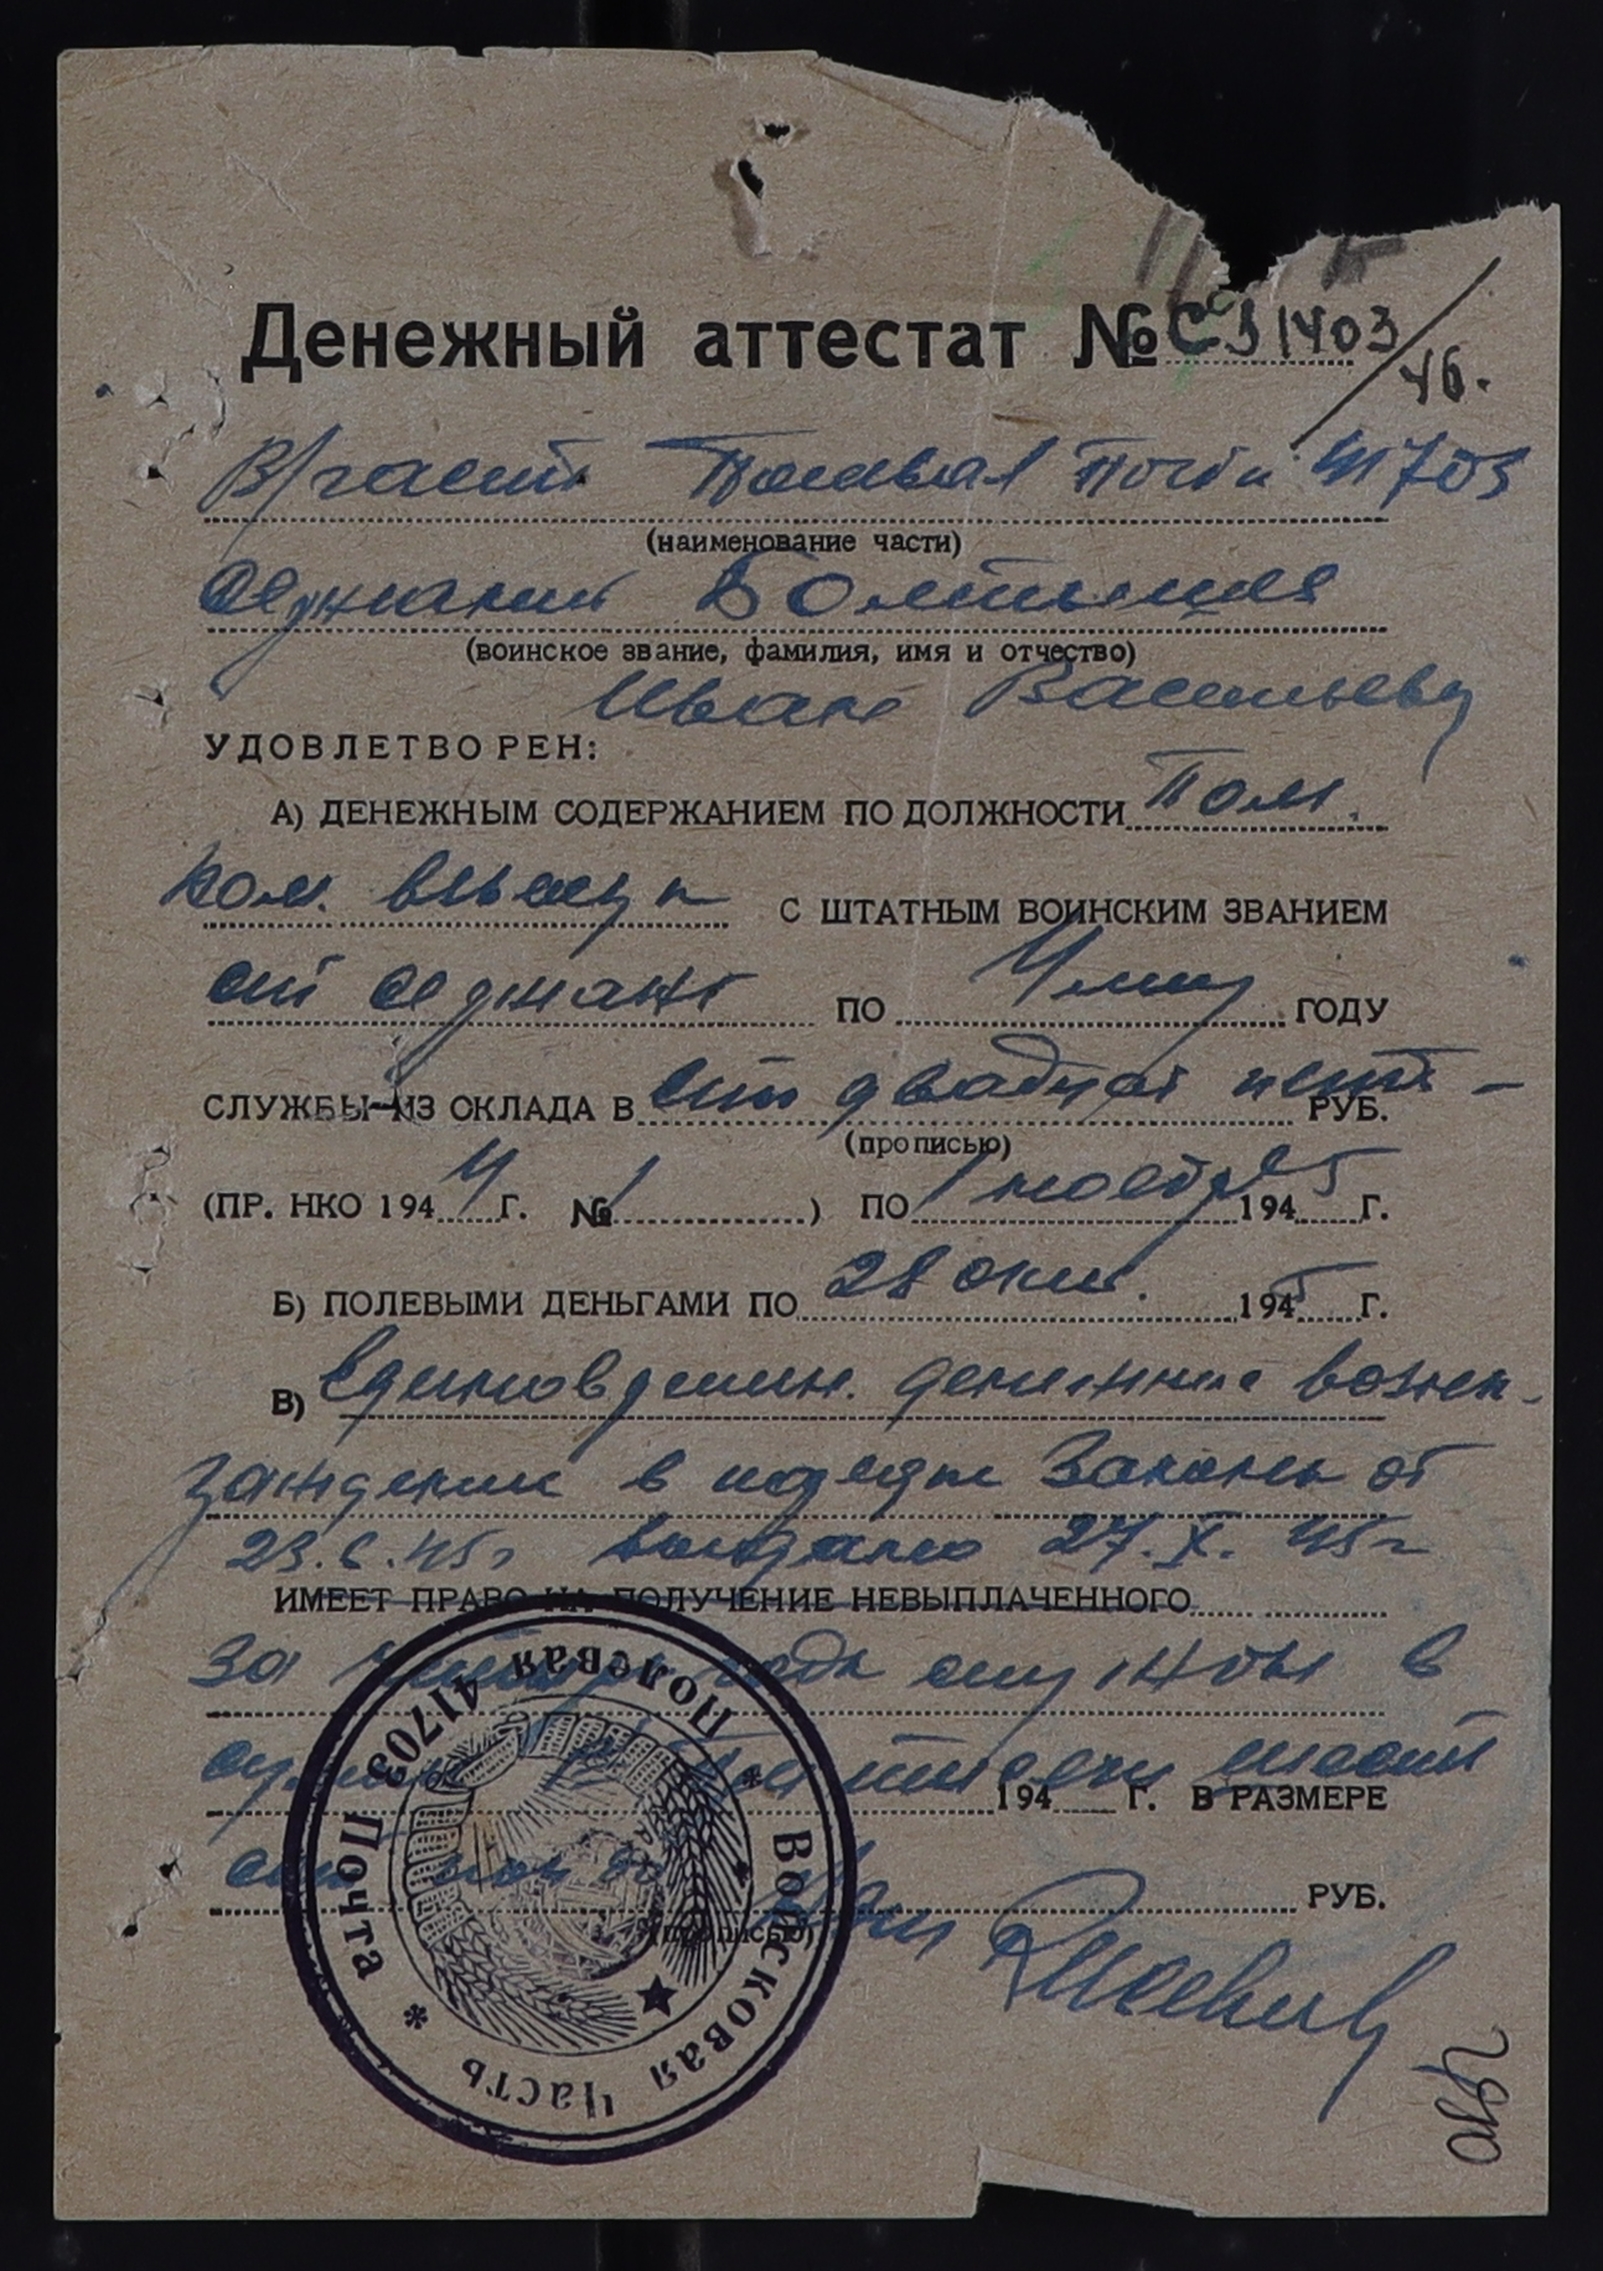 Денежный аттестат № С31403/46.
В/часть Полевая Почта 41703
(наименование части)
Сержант
(воинское звание, фамилия, имя и отчество)
Иван Васильеву
УДОВЛЕТВОРЕН:
А) ДЕНЕЖНЫМ СОДЕРЖАНИЕМ ПО ДОЛЖНОСТИ Пом.
ком. взвода С ШТАТНЫМ ВОИНСКИМ ЗВАНИЕМ
ст сержант ПО 4 му ГОДУ
СЛУЖБЫ ИЗ ОКЛАДА В сто двадцать РУБ.
(прописью)
(ПР. НКО 1944 Г. № 1) ПО 1 ноября 1945 Г.
Б) ПОЛЕВЫМИ ДЕНЬГАМИ ПО 28 окт. 1945 Г.
В) Единовремен. денежное вознаг-
раждение в порядке Закона от
23.6.45г выдано 27.X.45г
ИМЕЕТ ПРАВО НА ПОЛУЧЕНИЕ НЕВЫПЛАЧЕННОГО
За четыре года службы в
сумме Три тысячи шесть
194 Г. В РАЗМЕРЕ
РУБ.
(прописью)
Войсковая Часть * Полевая Почта 41703 *